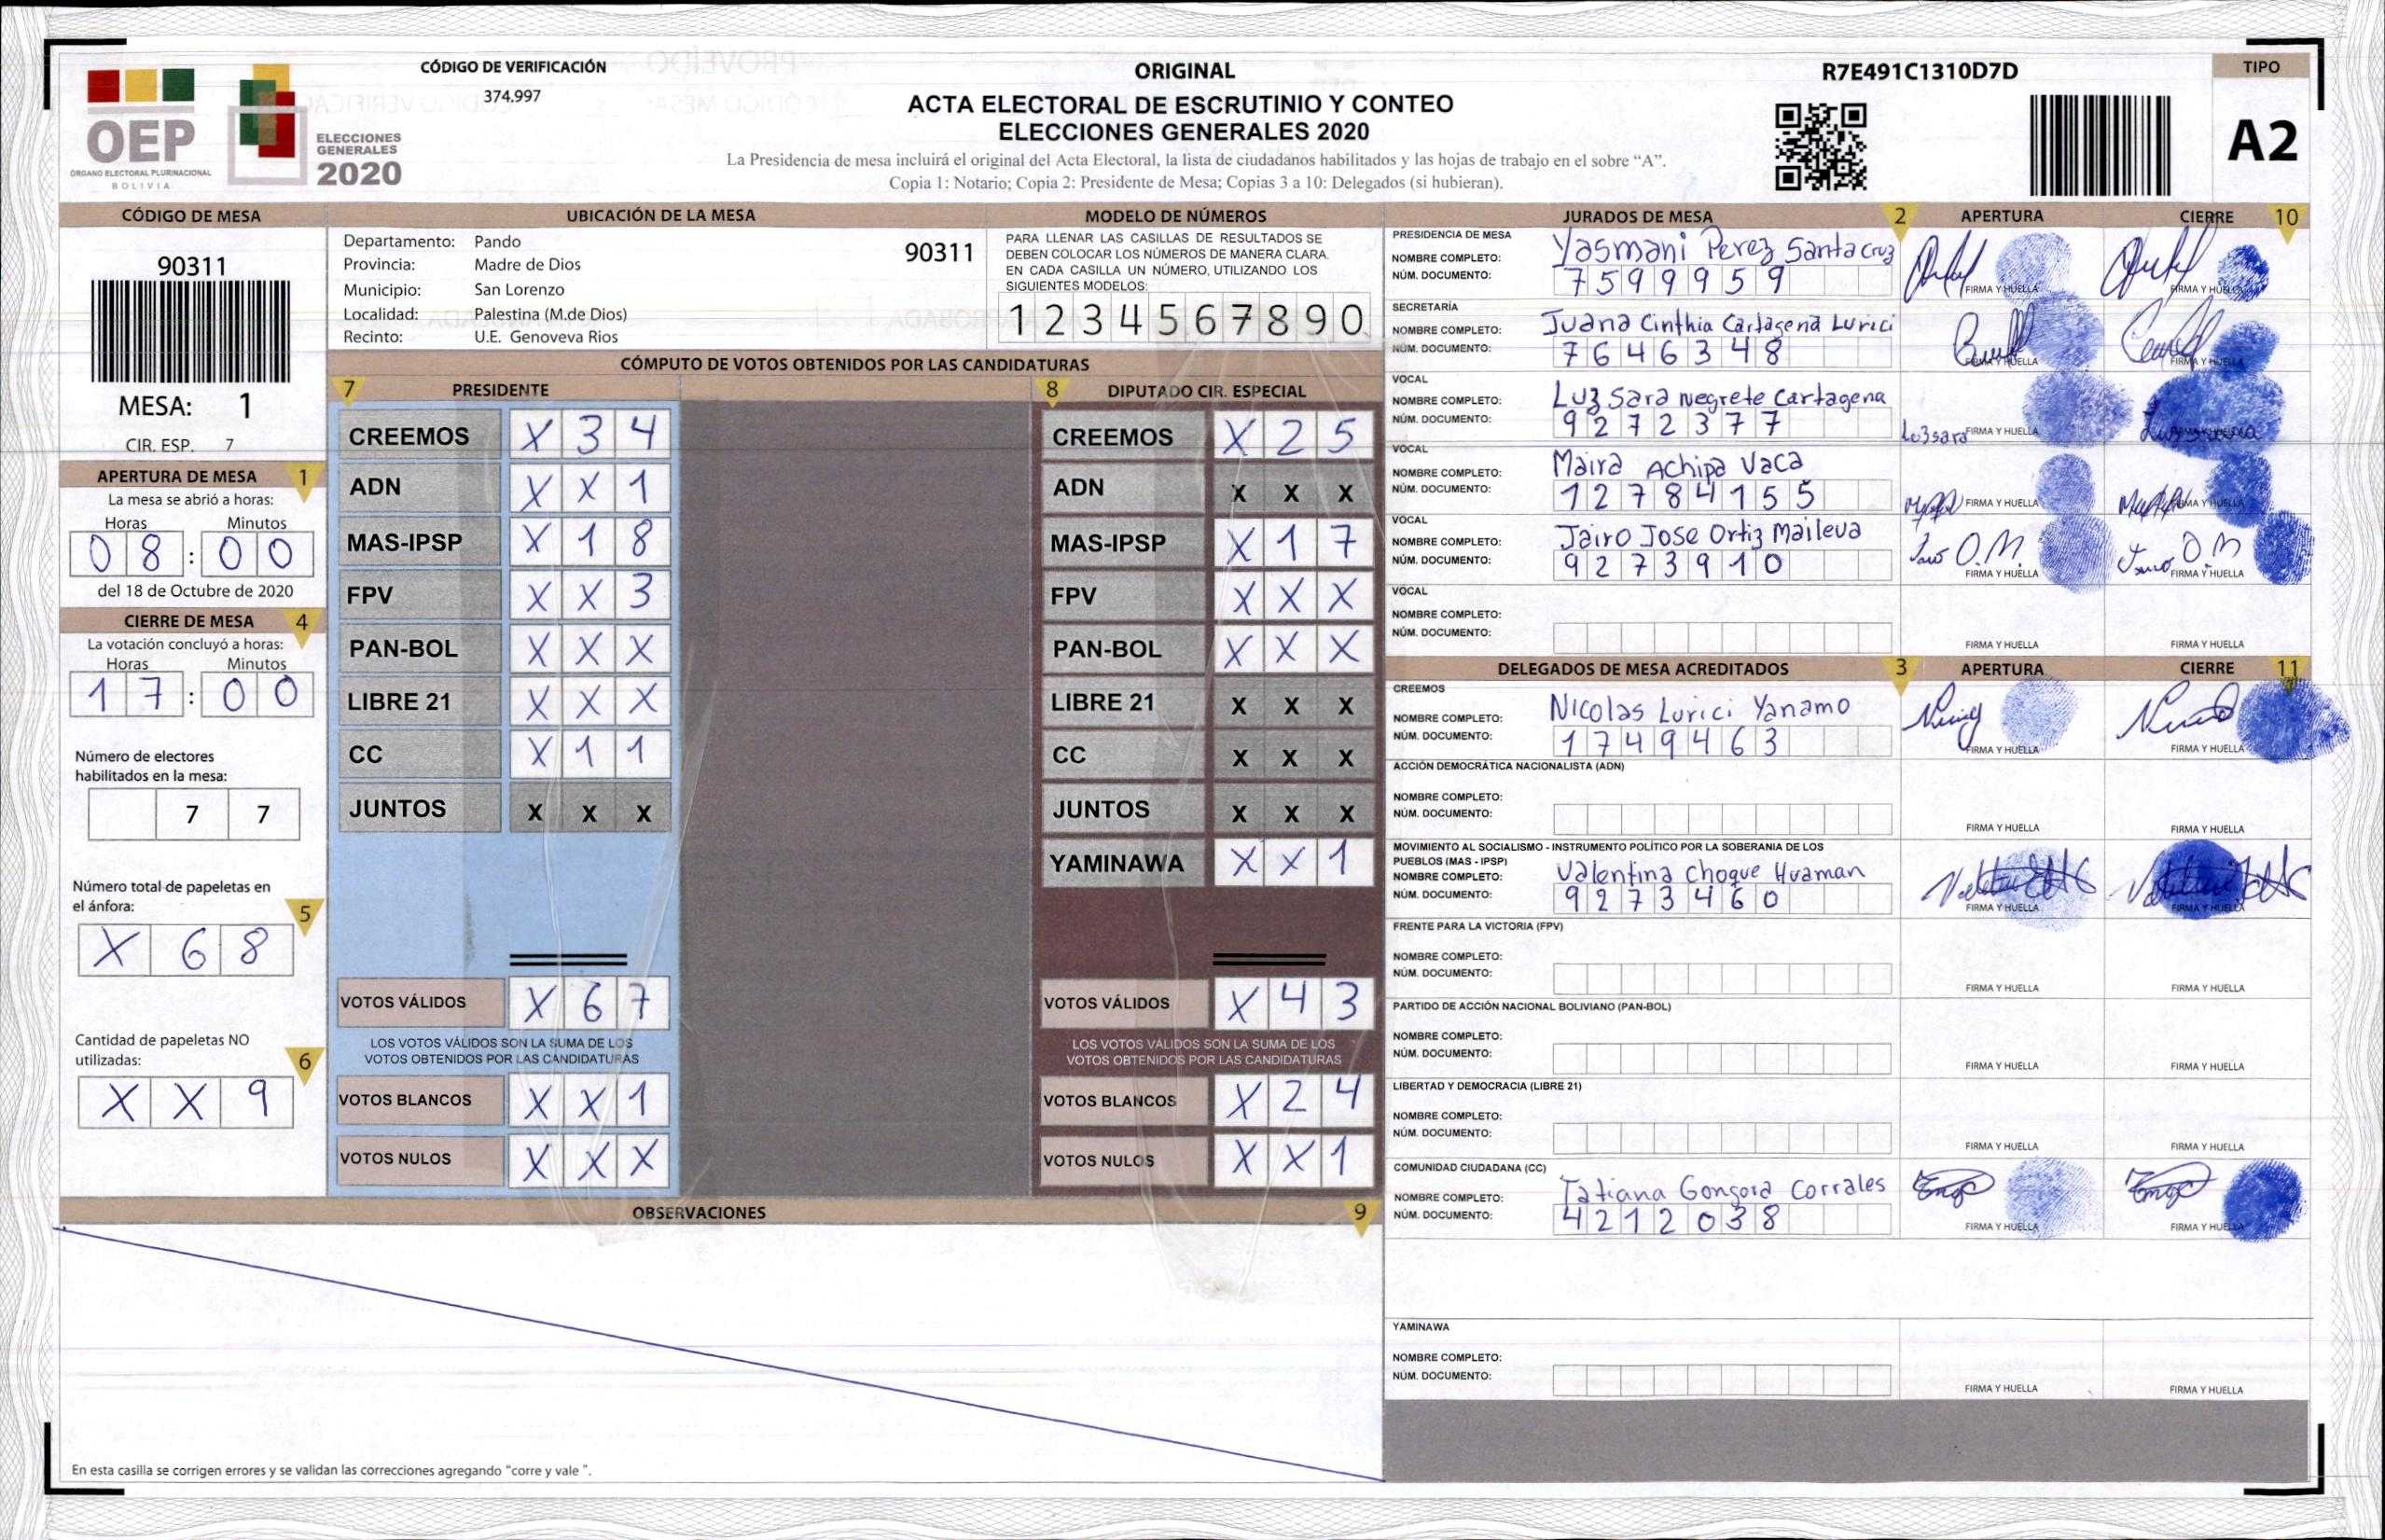 OEP
ÓRGANO ELECTORAL PLURINACIONAL
BOLIVIA
ELECCIONES
GENERALES
2020
CÓDIGO DE VERIFICACIÓN
374.997
ORIGINAL
ACTA ELECTORAL DE ESCRUTINIO Y CONTEO
ELECCIONES GENERALES 2020
La Presidencia de mesa incluirá el original del Acta Electoral, la lista de ciudadanos habilitados y las hojas de trabajo en el sobre “A”.
Copia 1: Notario; Copia 2: Presidente de Mesa; Copias 3 a 10: Delegados (si hubieran).
R7E491C1310D7D
TIPO
A2
CÓDIGO DE MESA
90311
MESA: 1
CIR. ESP. 7
APERTURA DE MESA 1
La mesa se abrió a horas:
Horas Minutos
0 8 : 0 0
del 18 de Octubre de 2020
CIERRE DE MESA 4
La votación concluyó a horas:
Horas Minutos
1 7 : 0 0
Número de electores
habilitados en la mesa:
7 7
Número total de papeletas en
el ánfora: 5
X 6 8
Cantidad de papeletas NO
utilizadas: 6
X X 9
UBICACIÓN DE LA MESA
Departamento: Pando 90311
Provincia: Madre de Dios
Municipio: San Lorenzo
Localidad: Palestina (M.de Dios)
Recinto: U.E. Genoveva Rios
MODELO DE NÚMEROS
PARA LLENAR LAS CASILLAS DE RESULTADOS SE
DEBEN COLOCAR LOS NÚMEROS DE MANERA CLARA.
EN CADA CASILLA UN NÚMERO, UTILIZANDO LOS
SIGUIENTES MODELOS:
1 2 3 4 5 6 7 8 9 0
CÓMPUTO DE VOTOS OBTENIDOS POR LAS CANDIDATURAS
7 PRESIDENTE
CREEMOS X 3 4
ADN X X 1
MAS-IPSP X 1 8
FPV X X 3
PAN-BOL X X X
LIBRE 21 X X X
CC X 1 1
JUNTOS X X X
VOTOS VÁLIDOS X 6 7
LOS VOTOS VÁLIDOS SON LA SUMA DE LOS
VOTOS OBTENIDOS POR LAS CANDIDATURAS
VOTOS BLANCOS X X 1
VOTOS NULOS X X X
8 DIPUTADO CIR. ESPECIAL
CREEMOS X 2 5
ADN X X X
MAS-IPSP X 1 7
FPV X X X
PAN-BOL X X X
LIBRE 21 X X X
CC X X X
JUNTOS X X X
YAMINAWA X X 1
VOTOS VÁLIDOS X 4 3
LOS VOTOS VÁLIDOS SON LA SUMA DE LOS
VOTOS OBTENIDOS POR LAS CANDIDATURAS
VOTOS BLANCOS X 2 4
VOTOS NULOS X X 1
OBSERVACIONES 9
En esta casilla se corrigen errores y se validan las correcciones agregando “corre y vale ”.
JURADOS DE MESA 2 APERTURA CIERRE 10
PRESIDENCIA DE MESA
NOMBRE COMPLETO: Yasmani Perez Santa Cruz
NÚM. DOCUMENTO: 7 5 9 9 9 5 9
FIRMA Y HUELLA FIRMA Y HUELLA
SECRETARÍA
NOMBRE COMPLETO: Juana Cinthia Cartagena Lurici
NÚM. DOCUMENTO: 7 6 4 6 3 4 8
FIRMA Y HUELLA FIRMA Y HUELLA
VOCAL
NOMBRE COMPLETO: Luz Sara Negrete Cartagena
NÚM. DOCUMENTO: 9 2 7 2 3 7 7
Luz sara FIRMA Y HUELLA
VOCAL
NOMBRE COMPLETO: Maira Achipa Vaca
NÚM. DOCUMENTO: 1 2 7 8 4 1 5 5
FIRMA Y HUELLA FIRMA Y HUELLA
VOCAL
NOMBRE COMPLETO: Jairo Jose Ortiz Maileva
NÚM. DOCUMENTO: 9 2 7 3 9 1 0
O.M. O M
FIRMA Y HUELLA FIRMA Y HUELLA
VOCAL
NOMBRE COMPLETO:
NÚM. DOCUMENTO:
FIRMA Y HUELLA FIRMA Y HUELLA
DELEGADOS DE MESA ACREDITADOS 3 APERTURA CIERRE 11
CREEMOS
NOMBRE COMPLETO: Nicolas Lurici Yanamo
NÚM. DOCUMENTO: 1 7 4 9 4 6 3
FIRMA Y HUELLA FIRMA Y HUELLA
ACCIÓN DEMOCRÁTICA NACIONALISTA (ADN)
NOMBRE COMPLETO:
NÚM. DOCUMENTO:
FIRMA Y HUELLA FIRMA Y HUELLA
MOVIMIENTO AL SOCIALISMO - INSTRUMENTO POLÍTICO POR LA SOBERANIA DE LOS
PUEBLOS (MAS - IPSP)
NOMBRE COMPLETO: Valentina Choque Huaman
NÚM. DOCUMENTO: 9 2 7 3 4 6 0
FIRMA Y HUELLA FIRMA Y HUELLA
FRENTE PARA LA VICTORIA (FPV)
NOMBRE COMPLETO:
NÚM. DOCUMENTO:
FIRMA Y HUELLA FIRMA Y HUELLA
PARTIDO DE ACCIÓN NACIONAL BOLIVIANO (PAN-BOL)
NOMBRE COMPLETO:
NÚM. DOCUMENTO:
FIRMA Y HUELLA FIRMA Y HUELLA
LIBERTAD Y DEMOCRACIA (LIBRE 21)
NOMBRE COMPLETO:
NÚM. DOCUMENTO:
FIRMA Y HUELLA FIRMA Y HUELLA
COMUNIDAD CIUDADANA (CC)
NOMBRE COMPLETO: Tatiana Gongora Corrales
NÚM. DOCUMENTO: 4 2 1 2 0 3 8
FIRMA Y HUELLA FIRMA Y HUELLA
YAMINAWA
NOMBRE COMPLETO:
NÚM. DOCUMENTO:
FIRMA Y HUELLA FIRMA Y HUELLA